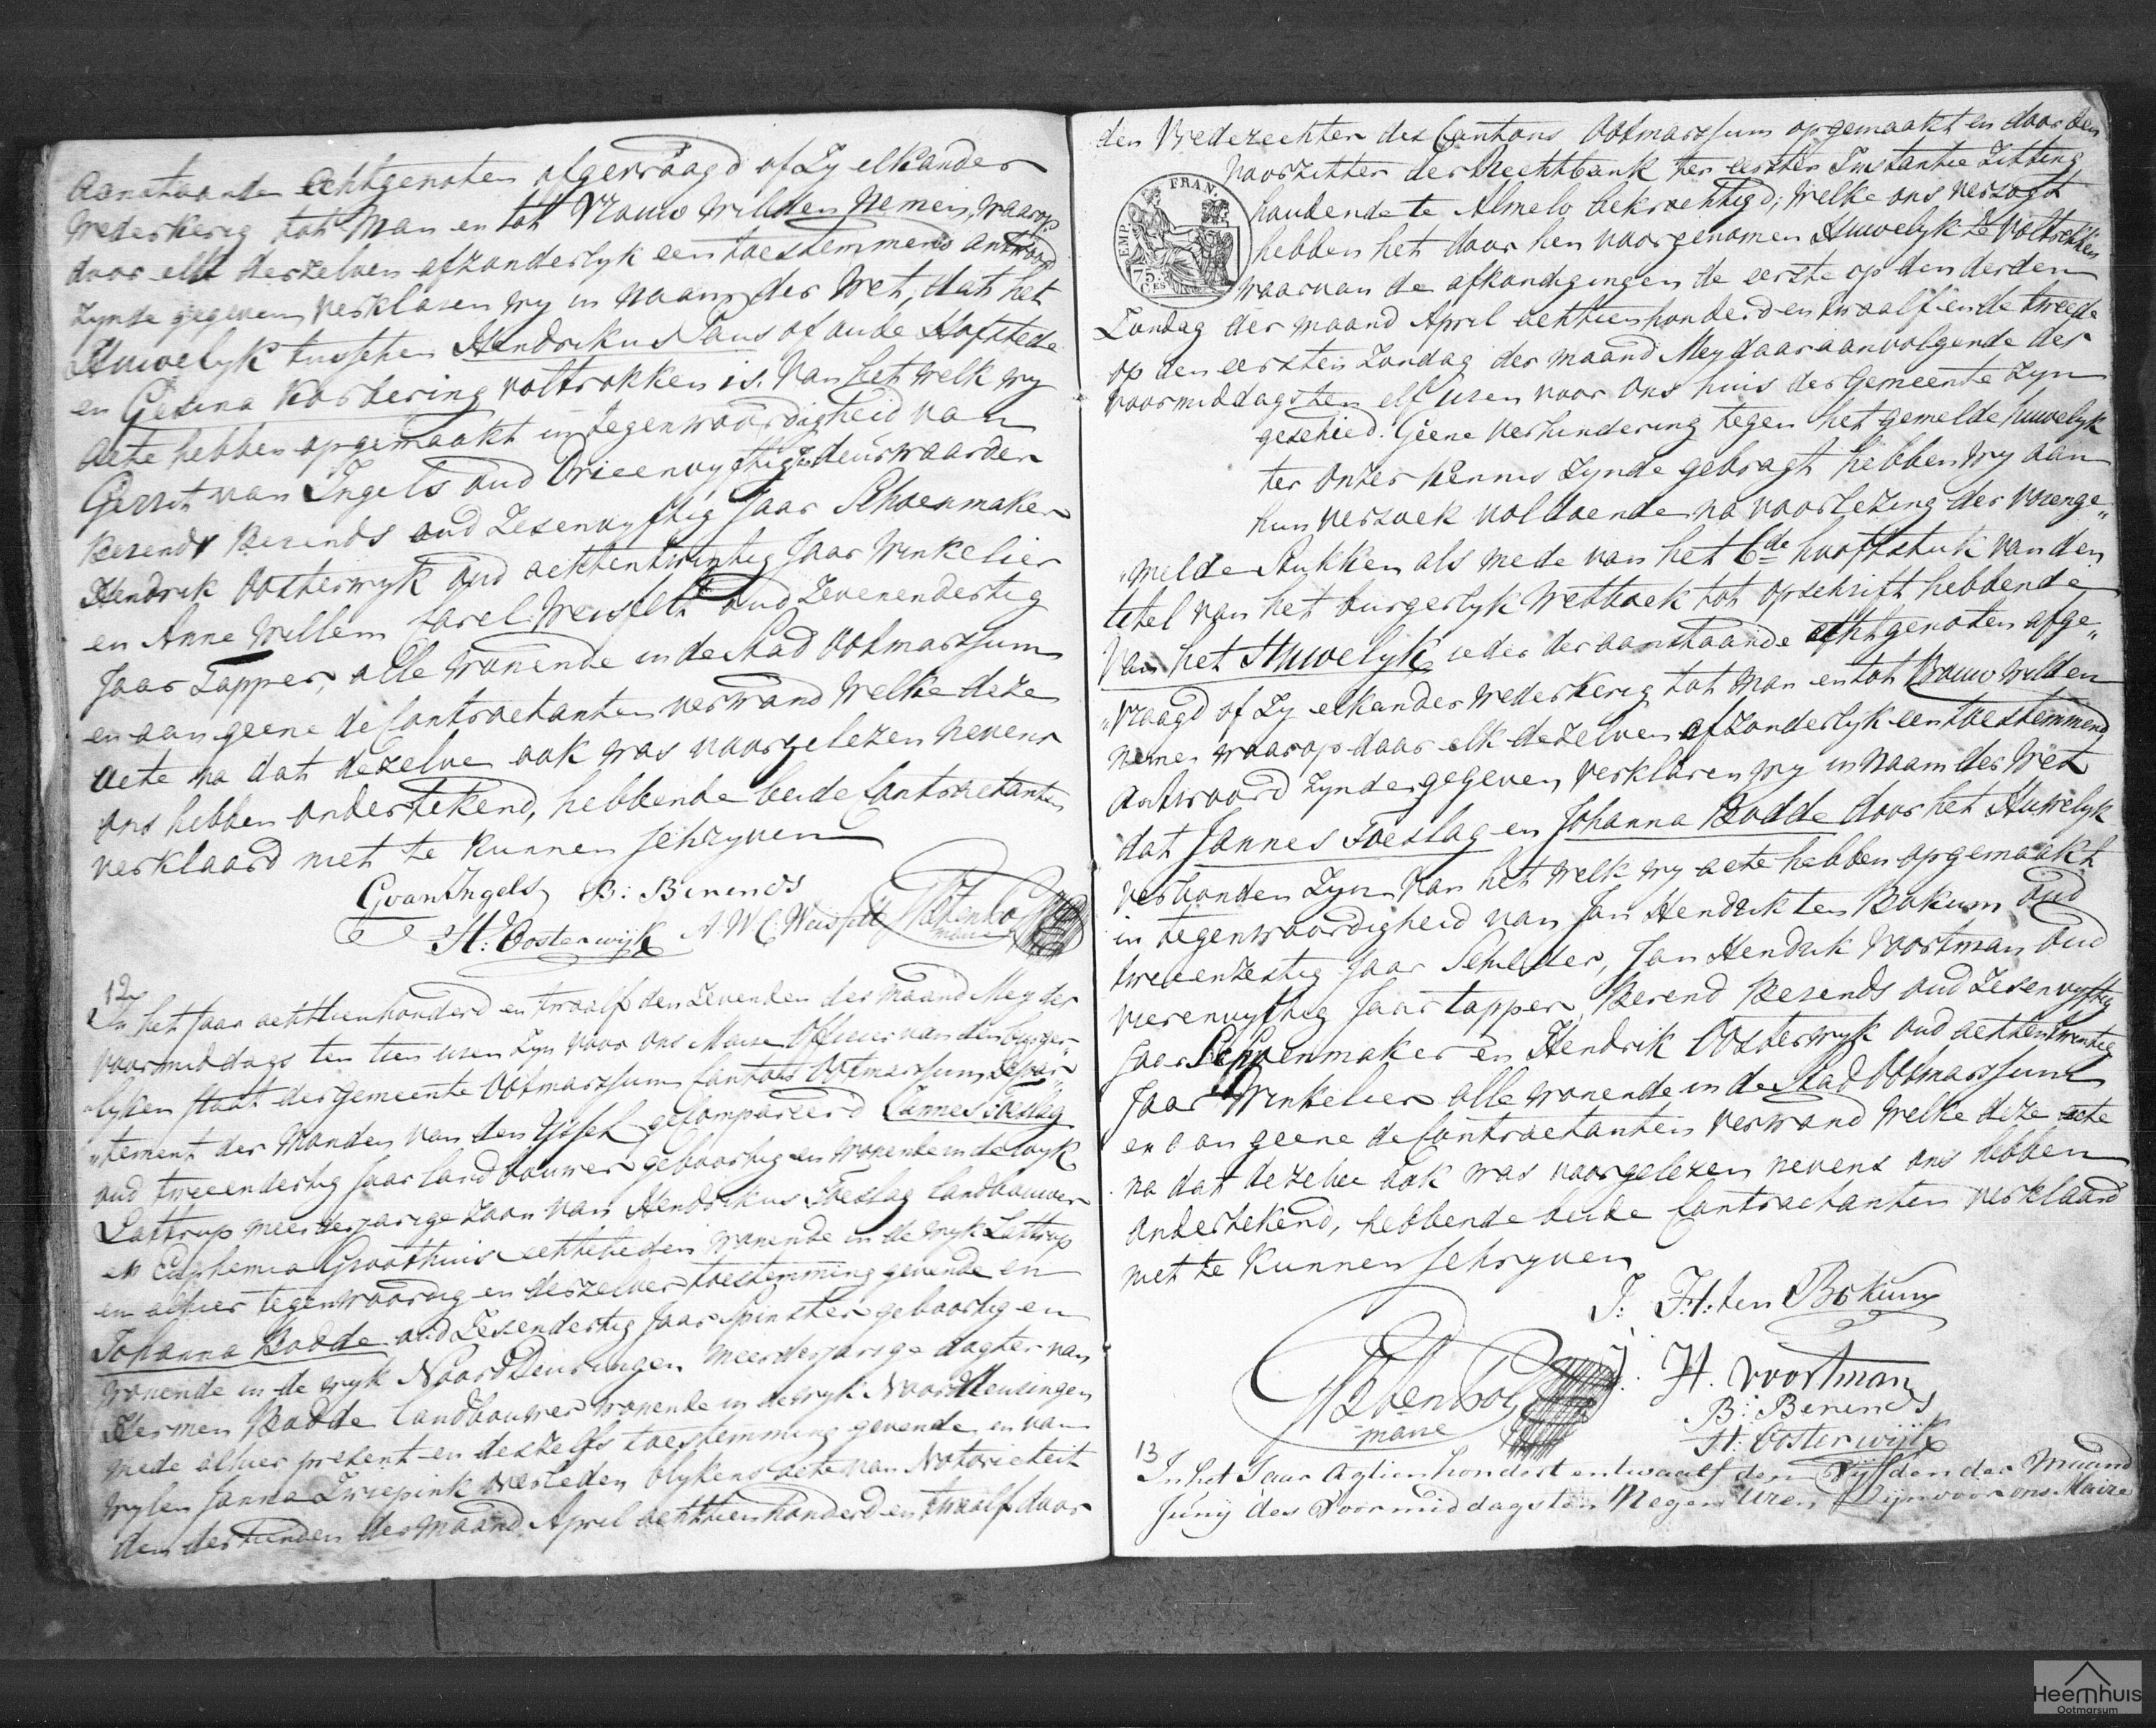 aanstaanden Echtgenoten afgevraagd of Zy elkander
wederkerig tot Man en tot Vrouw willden Nemen, waarop
door elk derzelven afzonderlyk een toestemmend antwoord
zynde gegeven, verklaren wy in Naam der Wet, dat het
Huwelyk tusschen Hendrikus of oude Hofstede
en Gesina Korbering voltrokken is. Van het welk wy
Acte hebben opgemaakt in tegenwoordigheid van
Gerrit van Ingels oud Drieenvyftig deurwaarder
Berend Berends oud Zesenvyftig Jaar Schoenmaker
Hendrik Oosterwyk oud achtentwintig Jaar Winkelier
en Anne Willem Carel Weisfelt oud Zevenendertig
Jaar Tapper, alle wonende in de Stad Ootmarssum
en aan geene de Contractanten verwand welke deze
acte na dat dezelve ook was voorgelezen nevens
ons hebben ondertekend, hebbende beide Contractanten
verklaard niet te kunnen schryven
GvanIngels B: Berends
H: Oosterwijk A.W.C. Weisfelt
maire
12
In het Jaar achttienhonderd en twaalf den Zevenden der maand Mey des
voormiddags ten tien uren Zyn voor ons Maire Officier van den burger-
"lyken staat der gemeente Ootmarssum Canton Ootmarssum Depar-
"tement der Monden van den Yssel gecompareerd Jannes Toeslag
oud tweeendertig Jaar landbouwer geboortig en wonende in de wyk
Lattrup meerderjarige zoon van Hendrikus Toeslag landbouwer
en Euphemia Groothuis echtelieden wonende in de wyk Lattrup
en alhier tegenwoordig en derzelver toestemming gevende en
Johanna Bodde oud Zesendertig Jaar Spinster geboortig en
wonende in de wyk Noord Deurningen meerderjarige dogter van
Hermen Bodde landbouwer wonende in de wyk Noord Deurningen
mede alhier present en deszelfs toestemming gevende en van
wylen Janna Zwiepink overleden blykens acte van Notorieteit
den dertienden der maand April achttienhonderd en twaalf door
den Vrederechter des Cantons Ootmarssum opgemaakt en door den
Voorzitter der Rechtbank ter eerster Instantie Zitting
EMP. FRAN.
75
CES
houdende te Almelo bekrachtigd; welke ons verzogt
hebben het door hen voorgenomen Huwelyk te Voltrekken
waarvan de afkondigingen de eerste op den derden
Zondag der maand April achttienhonderd en twaalf en de tweede
op den eersten Zondag der maand Mey daaraanvolgende des
voormiddags ten elf uren voor ons huis der Gemeente Zyn
geschied. Geene verhindering tegen het gemelde huwelyk
ter onzer kennis Zynde gebragt hebben wy aan
hun verzoek voldoende na voorlezing der vorenge"
"melde Stukken als mede van het 6de hooftstuk van den
tetel van het burgerlyk Wetboek tot opschrift hebbende
van het Huwelyk ieder der aanstaande echtgenoten afge"
"vraagd of Zy elkander wederkerig tot Man en tot Vrouw willden
nemen waarop door elk dezelven afzonderlyk een toestemmend
Antwoord Zynde gegeven, verklaren wy in naam der Wet
dat Jannes Toeslag en Johanna Bodde door het Huwelyk
verbonden Zyn. Van het welk wy acte hebben opgemaakt
in tegenwoordigheid van Jan Hendrik ten Bokum oud
tweeenzestig Jaar Schilder, Jan Hendrik Voortman oud
vierenvyftig Jaar tapper, Berend Berends oud Zesenvyftig
Jaar Schoenmaker en Hendrik Oosterwyk oud achtentwintig
Jaar Winkelier alle wonende in de Stad Ootmarssum
en aan geene de Contractanten verwand welke deze acte
na dat dezelve ook was voorgelezen nevens ons hebben
ondertekend, hebbende beide Contractanten verklaard
niet te kunnen schryven
J: H: ten Bokum
J: H. Voortman
maire
B: Berends
H: Oosterwijk
13
In het Jaar Agtienhondert en twaalf den Vijfden der Maand
Junij des Voormiddags ten Negen Uren Zijn voor ons Maire
Heemhuis
Ootmarsum